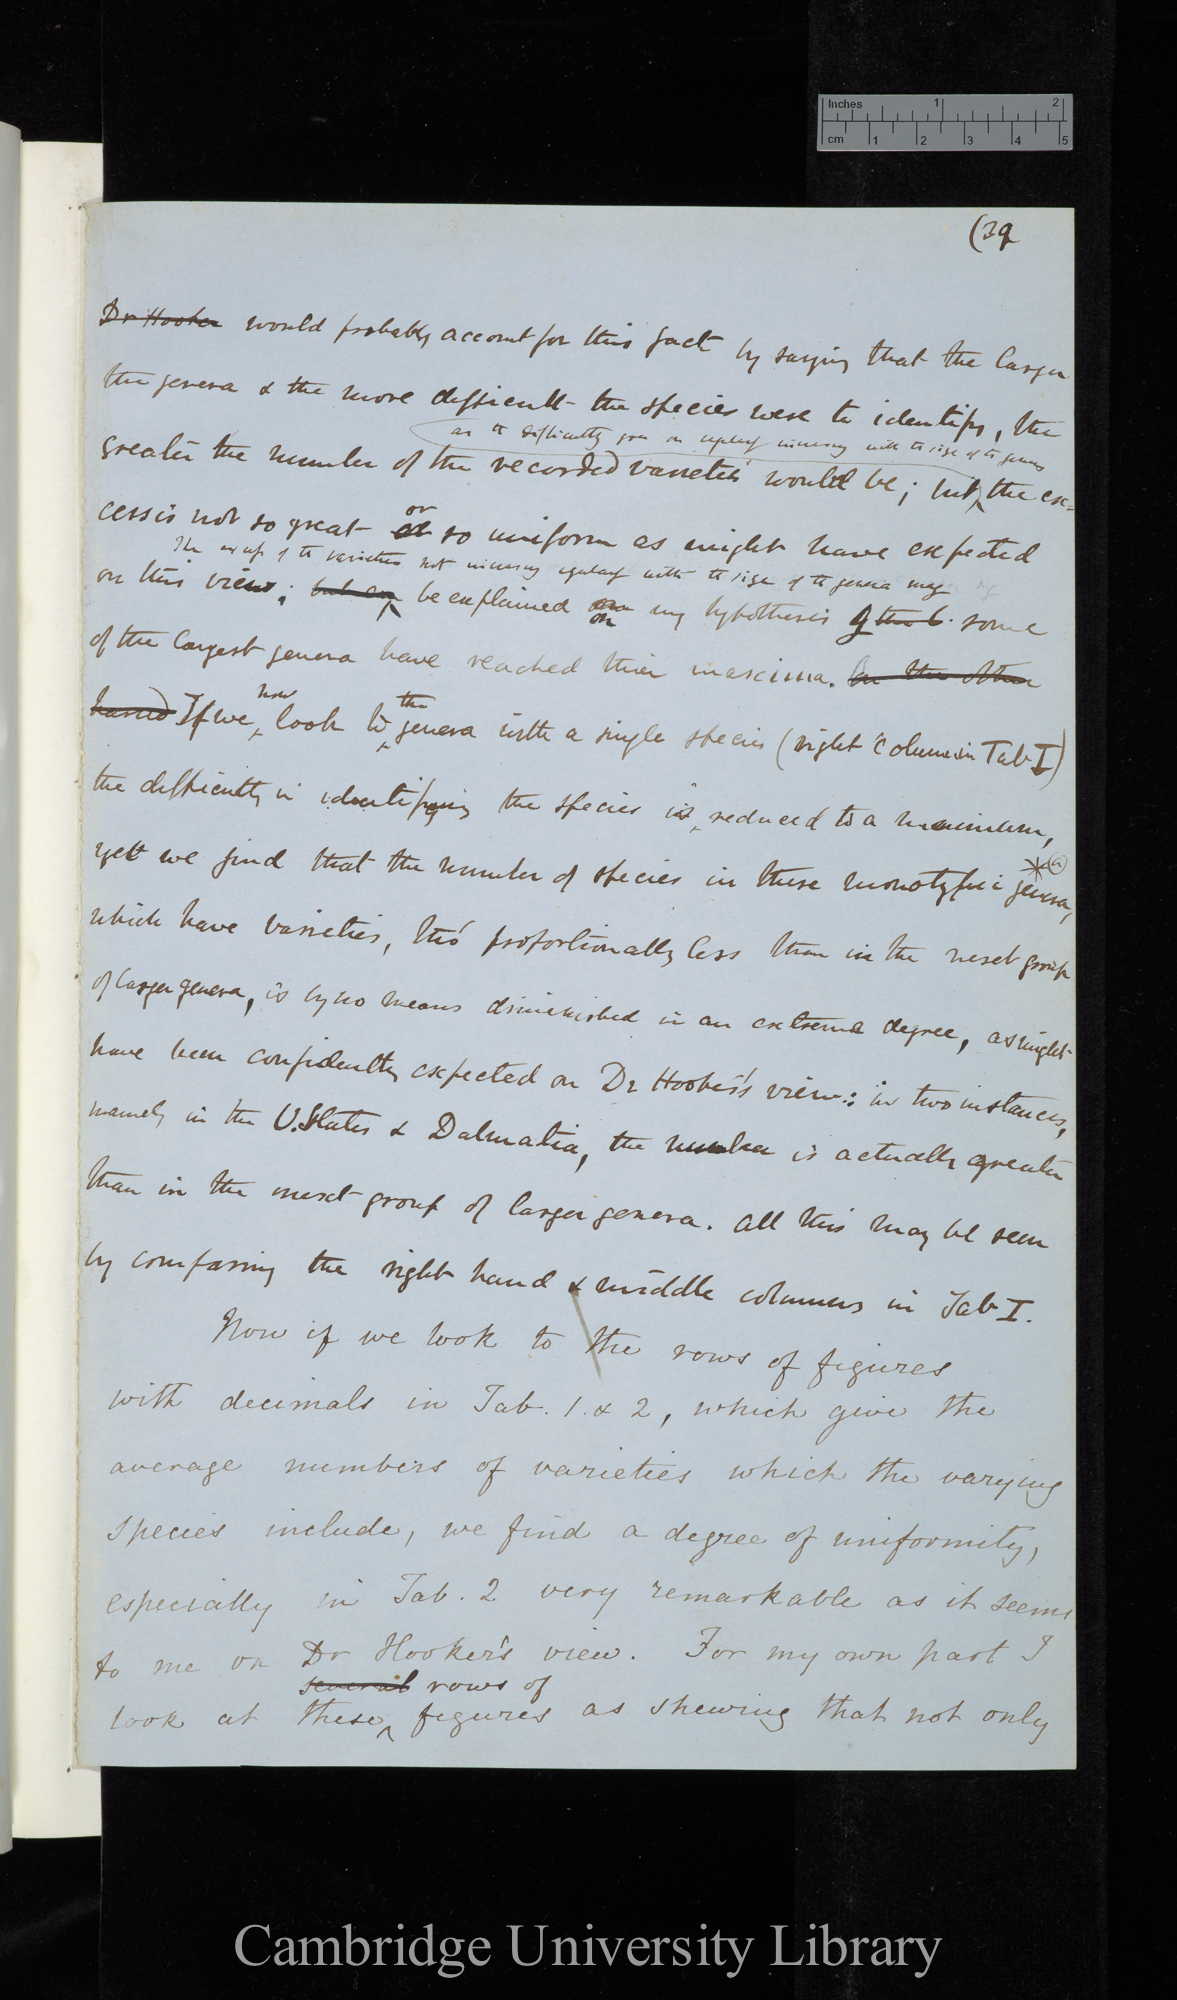 Inches 1 2
cm 1 2 3 4 5
(39
Dr Hooker would probably account for this fact by saying that the larger
the genera & the more difficult the species were to identify, the
as the difficulty goes on regularly increasing with the size of the genus
greater the number of the recorded varieties would be; but, the ex-
or
cess is not so great so uniform as might have expected
The excess of the varieties not increasing regularly with the size of the genera may
on this view; but can be explained on my hypothesis some
of the largest genera have reached their maxima. On the other
now the
hand If we look to genera with a single species (right column in Tab I)
the difficulty in identifying the species is reduced to a minimum,
yet we find that the number of species in these monotypic genera,
which have varieties, tho' proportionally less than in the next group
of larger genera, is by no means diminished in an extreme degree, as might
have been confidently expected on Dr Hooker's view: in two instances,
namely in the U. States & Dalmatia, the number is actually greater
than in the next group of larger genera. All this may be seen
by comparing the right hand & middle columns in Tab I.
Now if we look to the rows of figures
with decimals in Tab. 1. & 2, which give the
average numbers of varieties which the varying
species include, we find a degree of uniformity,
especially in Tab. 2 very remarkable as it seems
to me on Dr Hooker's view. For my own part I
several rows of
look at these figures as shewing that not only
Cambridge University Library